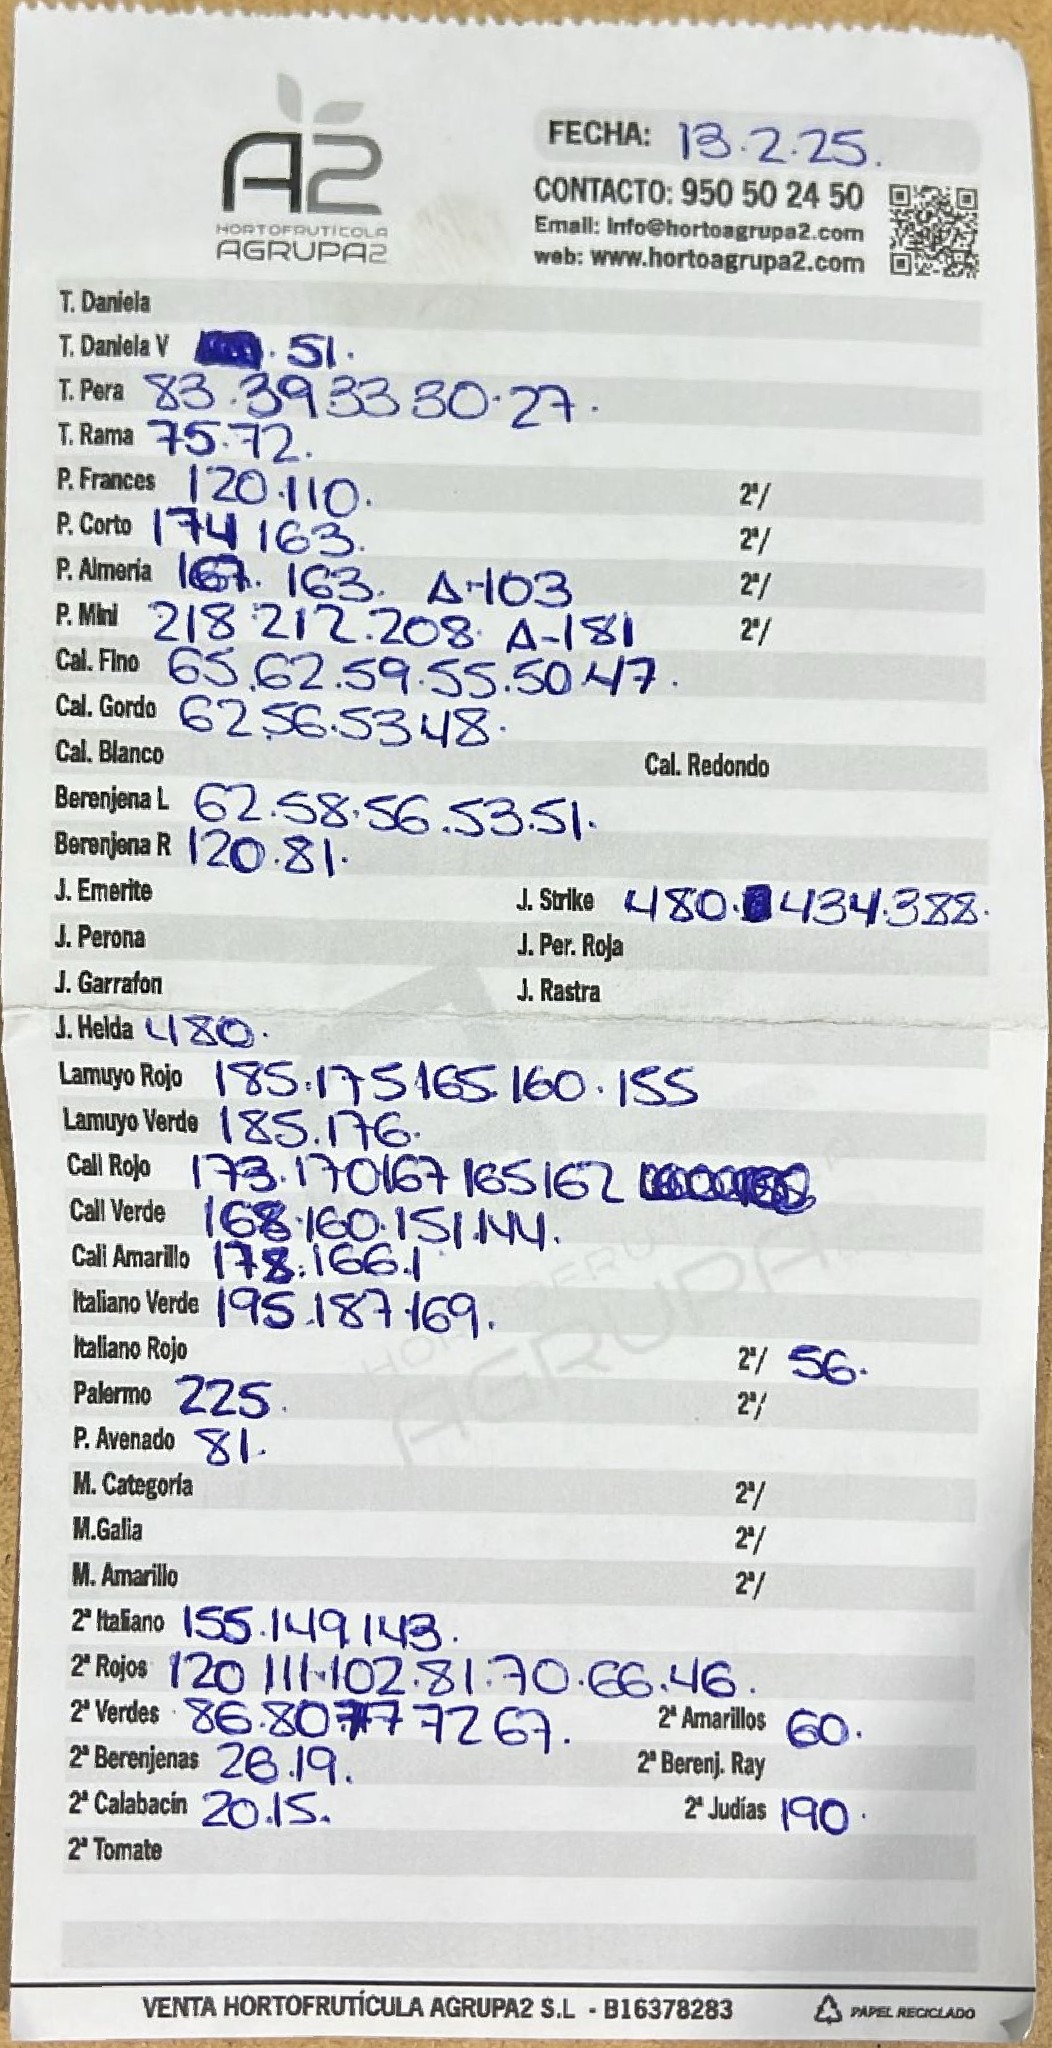 A2
HORTOFRUTÍCOLA
AGRUPA2
FECHA: 13.2.25.
CONTACTO: 950 50 24 50
Email: Info@hortoagrupa2.com
web: www.hortoagrupa2.com
T. Daniela
T. Daniela V . 51.
T. Pera 83.39.33 30.27.
T. Rama 75.72.
P. Frances 120.110. 2ª/
P. Corto 174 163. 2ª/
P. Almería 167. 163. A-103 2ª/
P. Mini 218 212.208. A-181 2ª/
Cal. Fino 65.62.59.55.50.47.
Cal. Gordo 62.56.53.48.
Cal. Blanco Cal. Redondo
Berenjena L 62.58.56.53.51.
Berenjena R 120.81.
J. Emerite J. Strike 480. 434.388.
J. Perona J. Per. Roja
J. Garrafon J. Rastra
J. Helda 480.
Lamuyo Rojo 185.175.165.160.155
Lamuyo Verde 185.176.
Cali Rojo 173.170167 165162
Cali Verde 168.160.151.144.
Cali Amarillo 178.166.1
Italiano Verde 195.187.169.
Italiano Rojo 2ª/ 56.
Palermo 225. 2ª/
P. Avenado 81.
M. Categoría 2ª/
M.Galia 2ª/
M. Amarillo 2ª/
2ª Italiano 155.149.143.
2ª Rojos 120 111.102.81.70.66.46.
2ª Verdes 86.80 77 72 67. 2ª Amarillos 60.
2ª Berenjenas .19. 2ª Berenj. Ray
2ª Calabacín 20.15. 2ª Judías 190.
2ª Tomate
HORTOFRU
AGRUPA
VENTA HORTOFRUTÍCULA AGRUPA2 S.L - B16378283 PAPEL RECICLADO